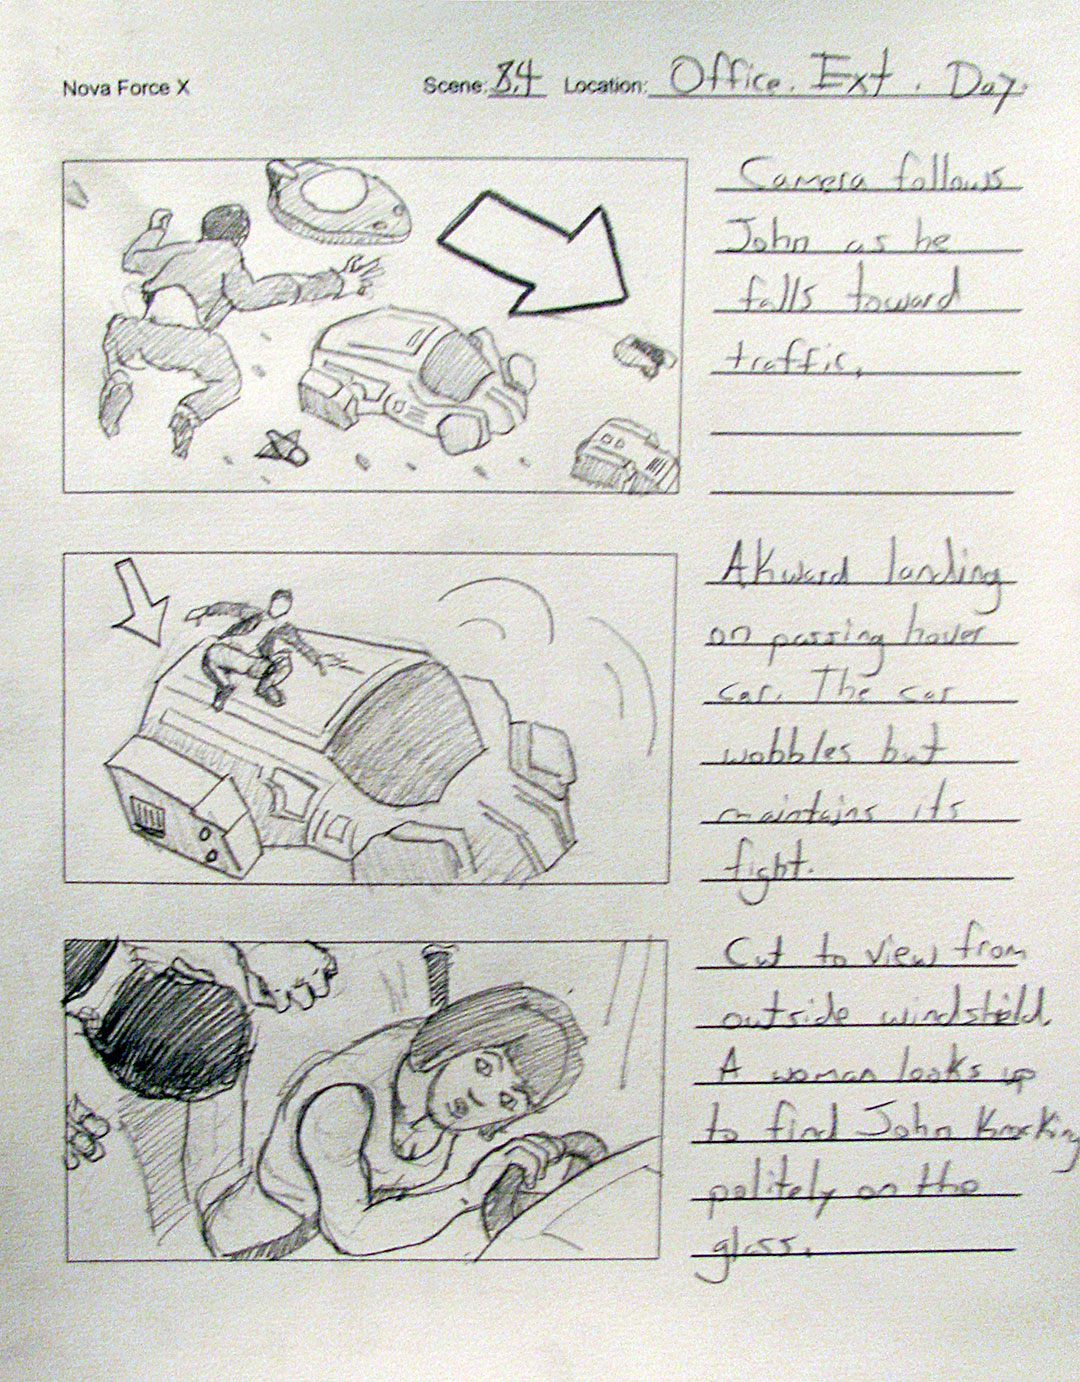 Nova Force X Scene: 8.4 Location: Office. Ext. Day.
Camera follows
John as he
falls toward
traffic.
Akward landing
on passing hover
car. The car
wobbles but
maintains its
fight.
Cut to view from
outside windshield.
A woman looks up
to find John Knocking
politely on the
glass.